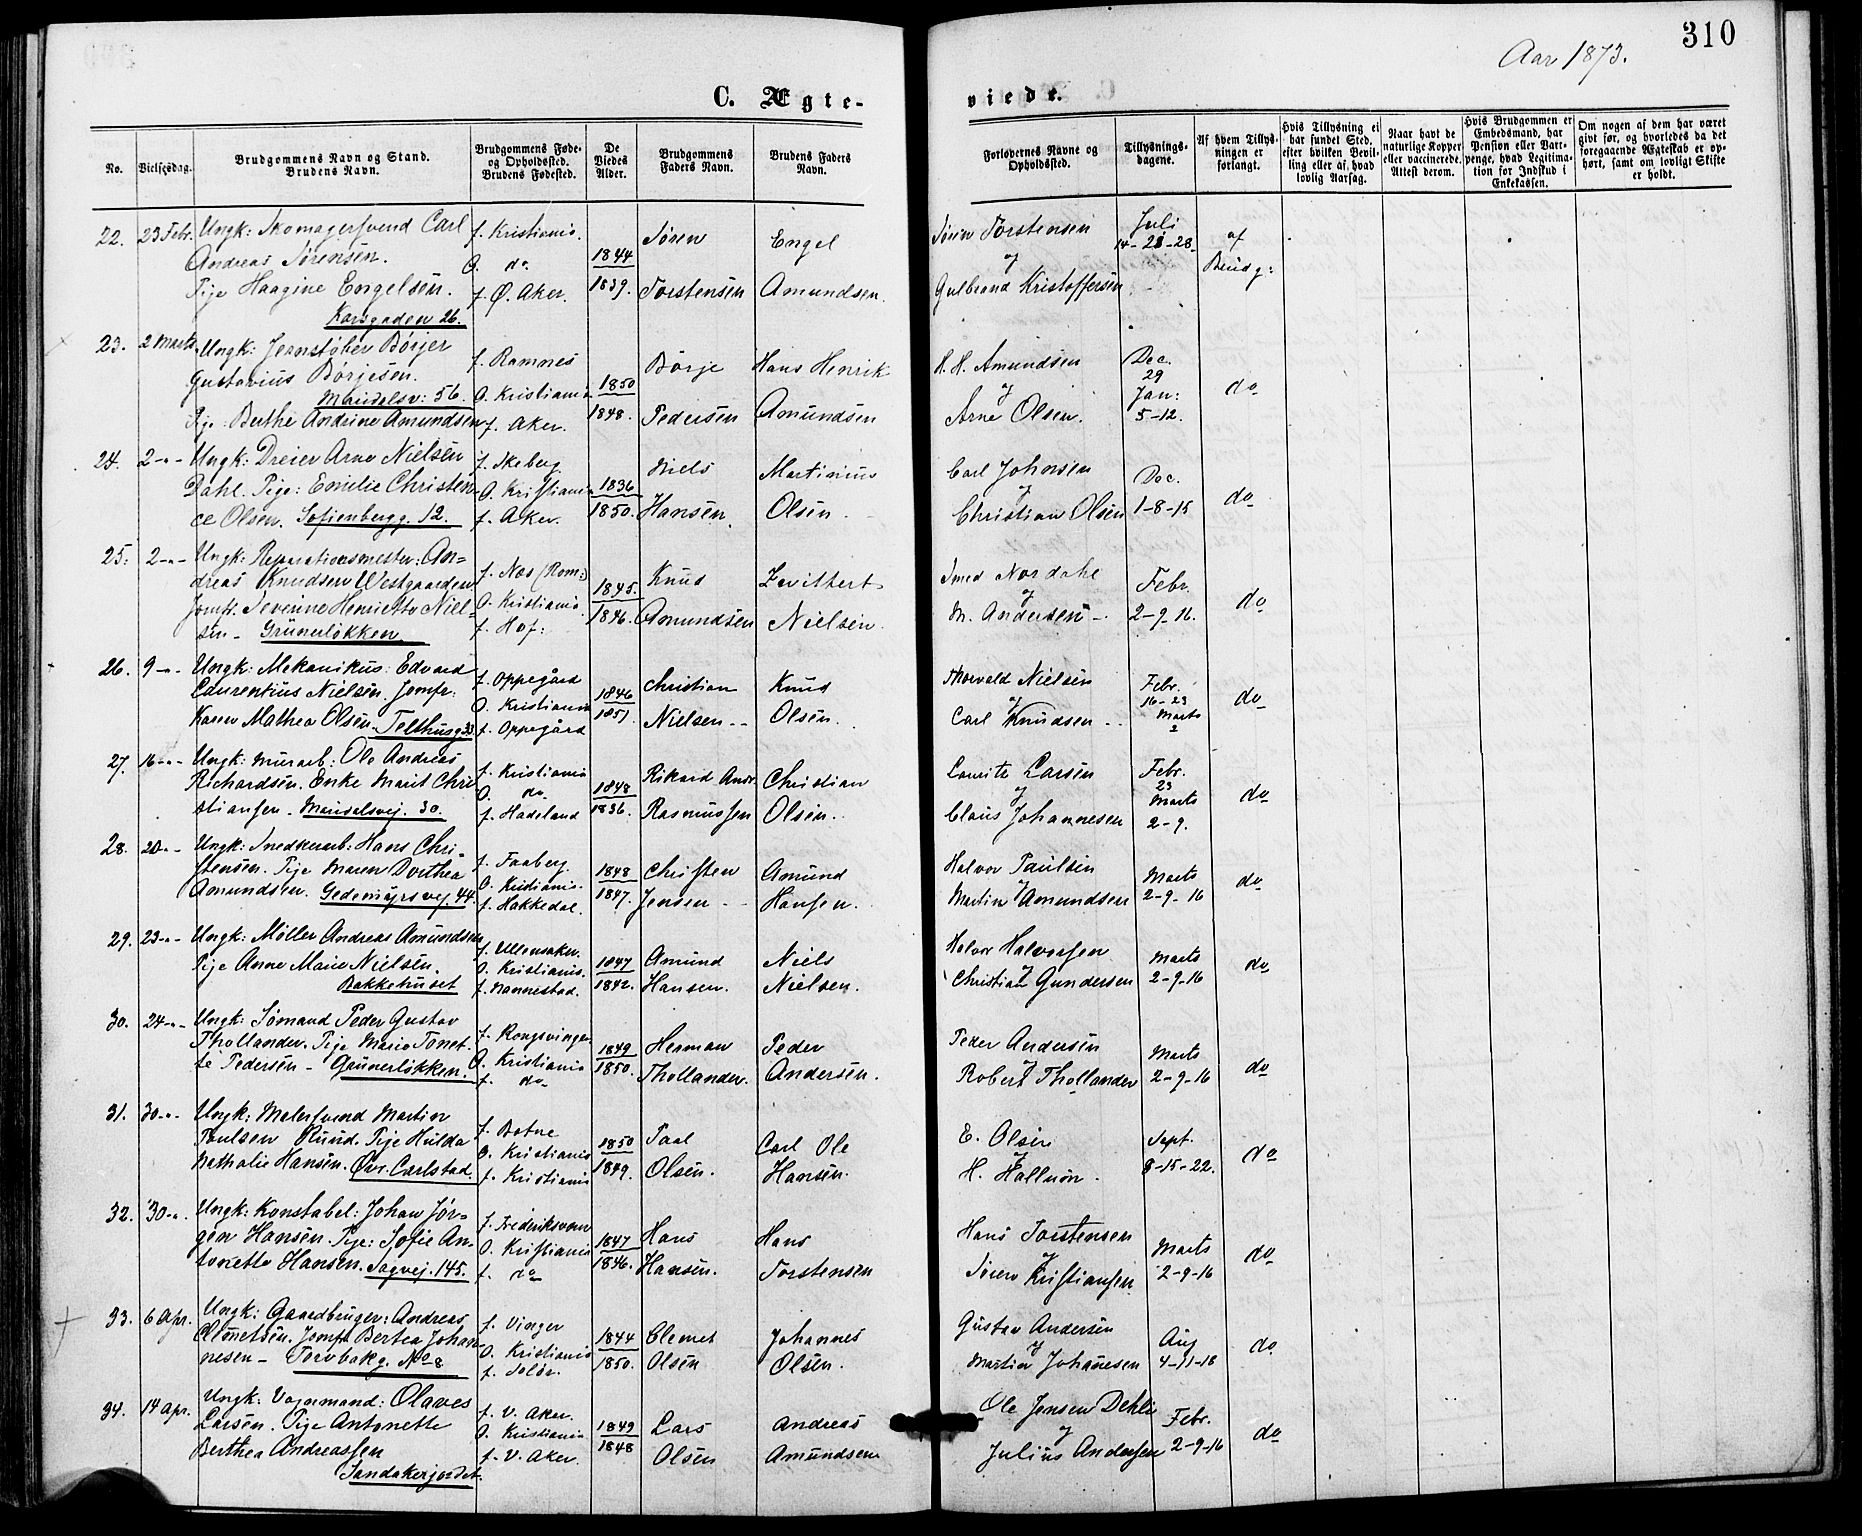 310
Aar 1873.
C. Ægte-
viede.
No.
Vielsesdag.
Brudgommens Navn og Stand.
Brudens Navn.
Brudgommens Føde-
og Opholdssted.
Brudens Fødested.
De
Viedes
Alder.
Brudgommens
Faders Navn.
Brudens Faders
Navn.
Forlovernes Navne og
Opholdssted.
Tillysnings-
dagene.
Af hvem Tillys-
ningen er
forlangt.
Hvis Tillysning ei
har fundet Sted,
efter hvilken Bevil-
ling eller af hvad
lovlig Aarsag.
Naar havt de
naturlige Kopper
eller vaccinerede.
Attest derom.
Hvis Brudgommen er
Embedsmand, har
Pension eller Vart-
penge, hvad Legitima-
tion for Indskud i
Enkekassen.
Om nogen af dem har været
gift før, og hvorledes da det
foregaaende Ægteskab er op-
hørt, samt om lovligt Skifte
er holdt.
22. 23 Febr. Ungk: Skomagersvend Carl
Andreas Sørensen.
Pige Haagine Engelsen.
Korsgaden 26.
f. Kristiania.
O. do.
f. Ø. Aker.
1844
1839.
Søren
Torstensen
Engel
Amundsen.
Søren Torstensen
og
Gulbrand Kristoffersen
Juli
14-21-28.
af
Brudg:
23. 2 Marts Ungk: Jernstøber Börjer
Gustavius Börjesen.
Maridalsv: 56.
Pige: Berthe Andrine Amundsen
f. Ramnes
O. Kristiania
f. Aker.
1850
1848.
Börje
Pedersen
Hans Henrik
Amundsen
H. H. Amundsen
og
Arne Olsen.
Dec.
29
Jan:
5-12.
do
24. 2-"- Ungk: Dreier Arne Nielsen
Dahl. Pige: Emilie Christen-
ce Olsen. Sofienbergg. 12.
f. Skeberg
O. Kristiania
f. Aker.
1836
1850.
Niels
Hansen
Martinius
Olsen
Carl Johnsen
og
Christian Olsen
Dec.
1-8-15
do
25. 2-"- Ungk: Reparationsmester: An=
dreas Knudsen Westgaarden
Jomfr. Severine Henriette Niel-
sen - Grünerløkken
f. Næs (Rom:)
O. Kristiania.
f. Hof:
1845.
1846.
Knud
Amundsen
Nielsen.
og
M. Andersen
Febr.
2-9-16.
do
26. 9-"- Ungk: Mekanikus: Edvard
Laurentius Nielsen. Jomfr:
Karen Mathea Olsen. Telthusg 33.
f. Oppegård
O. Kristiania
f. Oppegård
1846
1851.
Christian
Nielsen
Knud
Olsen.
Thorvald Nielsen
og
Carl Knudsen
Febr.
16-23
Marts
2
do
27. 16-"- Ungk: Murarb: Ole Andreas
Richardsen. Enke Marit Chri
stiansen. Maridalsvej. 30.
f. Kristiania
O. do.
f. Hadeland
1848
1836.
Rikard Andr.
Rasmussen
Christian
Olsen.
Lauritz Larsen
og
Claus Johannesen
Febr.
23
Marts
2-9.
do
28. 20-"- Ungk: Snedkerarb: Hans Chri-
stensen. Pige Maren Dorthea
Amundsen. Gedemyrsvej 44.
f. Faaberg
O. Kristiania.
f. Hakkedal.
1848
1847.
Christen
Jensen
Amund
Hansen.
Halvor Paulsen
og
Martin Amundsen
Marts
2-9-16
do
29. 23-"- Ungk: Møller Andreas Amundsen
Pige Anne Marie Nielsen.
Bakkehuset
f. Ullensaker.
O. Kristiania.
f. Nannestad.
1847
1842.
Amund
Hansen.
Niels
Nielsen.
Halvor Halvorsen
og
Christian Gundersen
Marts
2-9-16
do
30. 24-"- Ungk: Sømand Peder Gustav
Thollander. Pige Marie Tonet-
te Pedersen - Grünerløkken.
f. Kongsvinger
O. Kristiania
f. do
1849
1850.
Herman
Thollander.
Peder
Andersen.
Peder Andersen
og
Robert Thollander
Marts
2-9-16
do
31. 30-"- Ungk: Malersvend Martin
Paulsen Rund. Pige Hulda
Nathalie Hansen. Øvr. Carlstad.
f. Botne
O. Kristiania
f. Kristiania
1850
1849.
Paal
Olsen.
Carl Ole
Hansen.
E. Olsen
og
Sept.
8-15-22.
do
32. 30-". Ungk: Konstabel: Johan Jør-
gen Hansen. Pige: Sofie An-
tonette Hansen. Sagvej. 145.
f. Frederiksværn
O. Kristiania
f. do
1847
1846.
Hans
Hansen.
Hans
Torstensen
Hans Torstensen
og
Søren Kristiansen.
Marts
2-9-16
do
33. 6 Apr. Ungk: Gaardbruger: Andreas
Clemetsen. Jomfr Bertea Johan
nesen - Torvbakg. No 8
f. Vinger
O. Kristiania
f. Solør.
1844
1850.
Clemet
Olsen
Johannes
Olsen.
Gustav Andersen
og
Martin Johannesen
Aug
4-11-18
do
34. 14 Apr. Ungk: Vognmand: Olaves
Larsen. Pige Antonette
Berthea Andreassen
Sandakerjordet.
f. V. Aker.
O. Kristiania
f. V. Aker.
1849
1848
Lars
Olsen
Andreas
Amundsen
Ole Jensen Dehli
og
Julius Andersen
Febr.
2-9-16
do